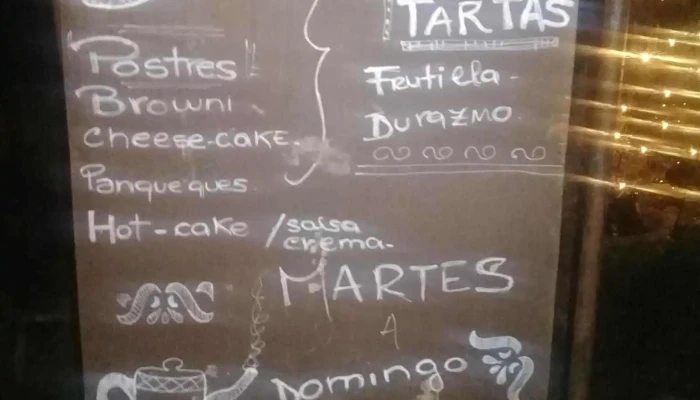 Postres
Browni
cheese-cake.
Panqueques
Hot-cake /salsa
crema-
TARTAS
Frutilla-
Durazmo
MARTES
A
Domingo